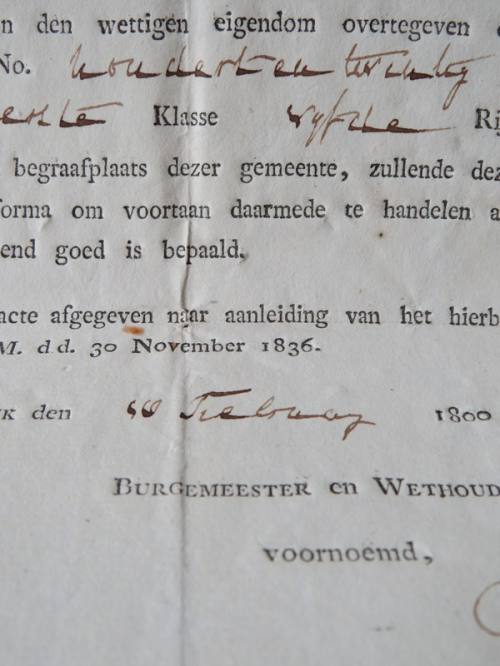 n den wettigen eigendom overtegeven
No. honderd en twintig
erste Klasse vyfde Ri
begraafplaats dezer gemeente, zullende dez
forma om voortaan daarmede te handelen a
end goed is bepaald.
acte afgegeven naar aanleiding van het hierb
M. dd. 30 November 1836.
K den Februay 1800
BURGEMEESTER en WETHOUD
voornoemd,